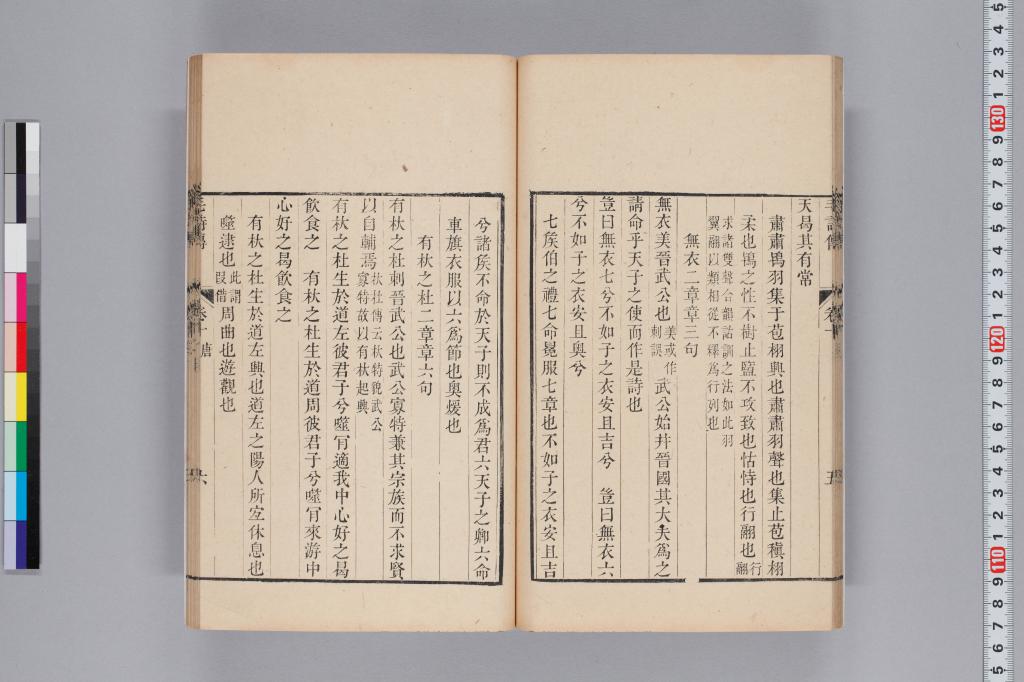 天曷其有常
肅肅鴇羽集于苞栩興也肅肅羽聲也集止苞稹栩
柔也鴇之性不樹止盬不攻致也怙恃也行翮也行翮
求諸雙聲合韻詁訓之法如此羽
翼翮以類相從不釋爲行列也
無衣二章章三句
無衣美晉武公也美或作刺誤武公始幷晉國其大夫爲之
請命乎天子之使而作是詩也
豈曰無衣七兮不如子之衣安且吉兮 豈曰無衣六
兮不如子之衣安且奧兮
七矦伯之禮七命冕服七章也不如子之衣安且吉
兮諸矦不命於天子則不成爲君六天子之卿六命
車旗衣服以六爲節也奧煖也
有杕之杜二章章六句
有杕之杜刺晉武公也武公寡特兼其宗族而不求賢
以自輔焉杕杜傳云杕特皃武公寡特故以有杕起興
有杕之杜生於道左彼君子兮噬肎適我中心好之曷
飲食之 有杕之杜生於道周彼君子兮噬肎來游中
心好之曷飲食之
有杕之杜生於道左興也道左之陽人所宐休息也
噬逮也此謂叚借周曲也遊觀也
毛詩傳 卷十 唐
六